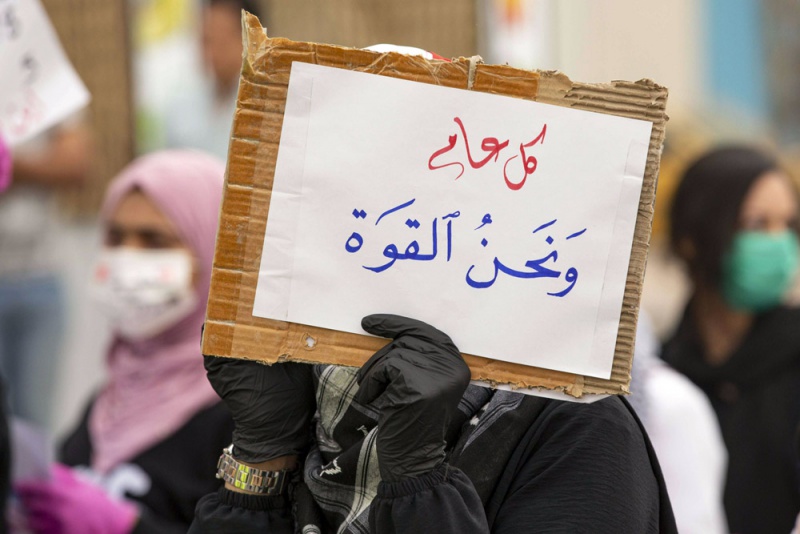 كل عام
ونَحنُ ٱلقوَة